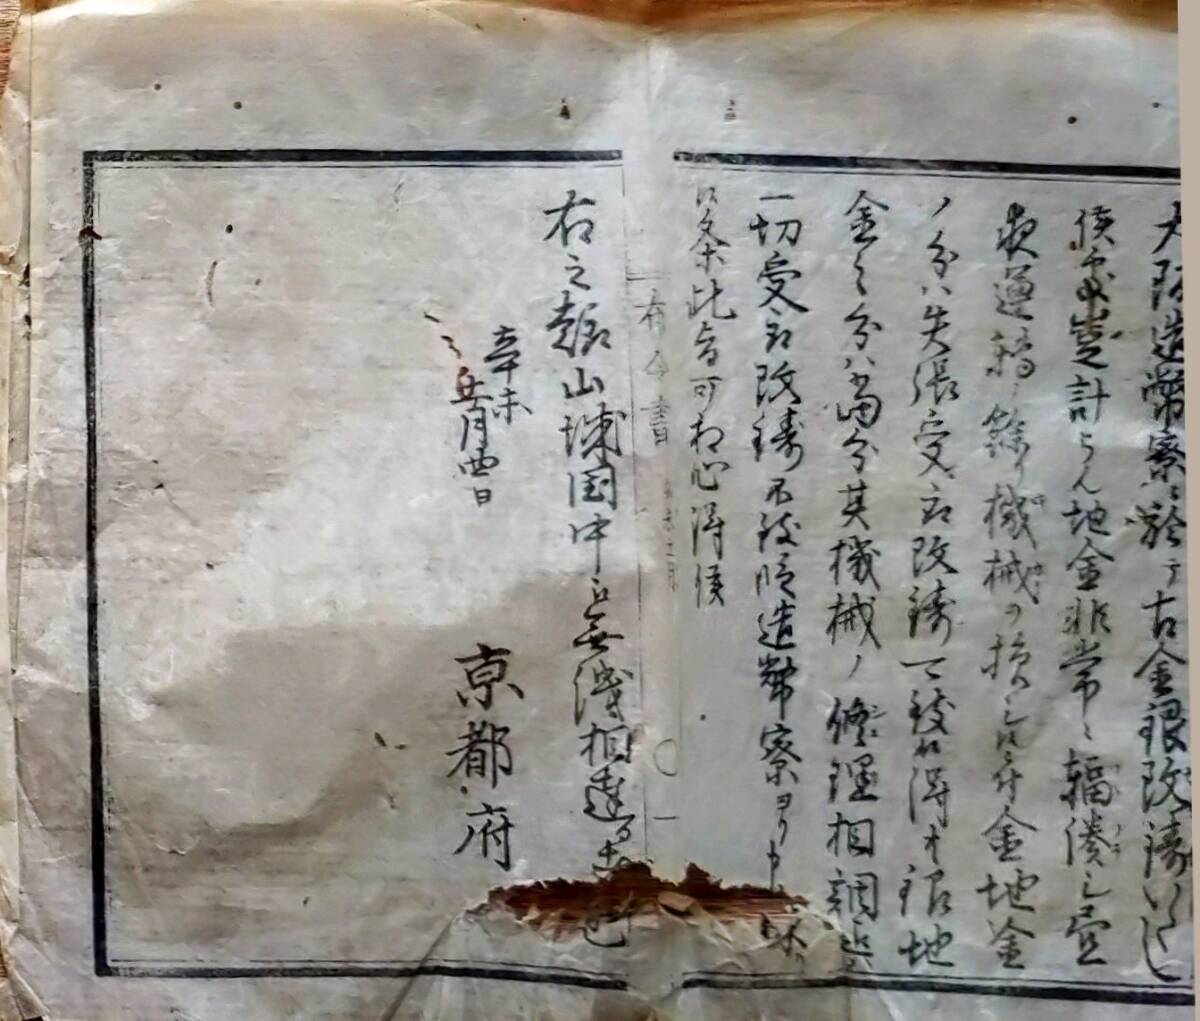 大阪造幣寮ニ於テ古金銀改鋳いたし
候處豈計らん地金非常ニ輻湊し壹
夜運転ノ餘り機械ヲ損し候ニ付金地金
ノ分ハ矢張受取改鋳可致候得共銀地
金之分ハ当分其機械ノ修理相調迄ハ
一切受取改鋳不致段造幣寮ヨリ申
候条此旨可相心得候
布令書
右之趣山城国中江無洩相達るもの也
辛未
五月四日
京都府